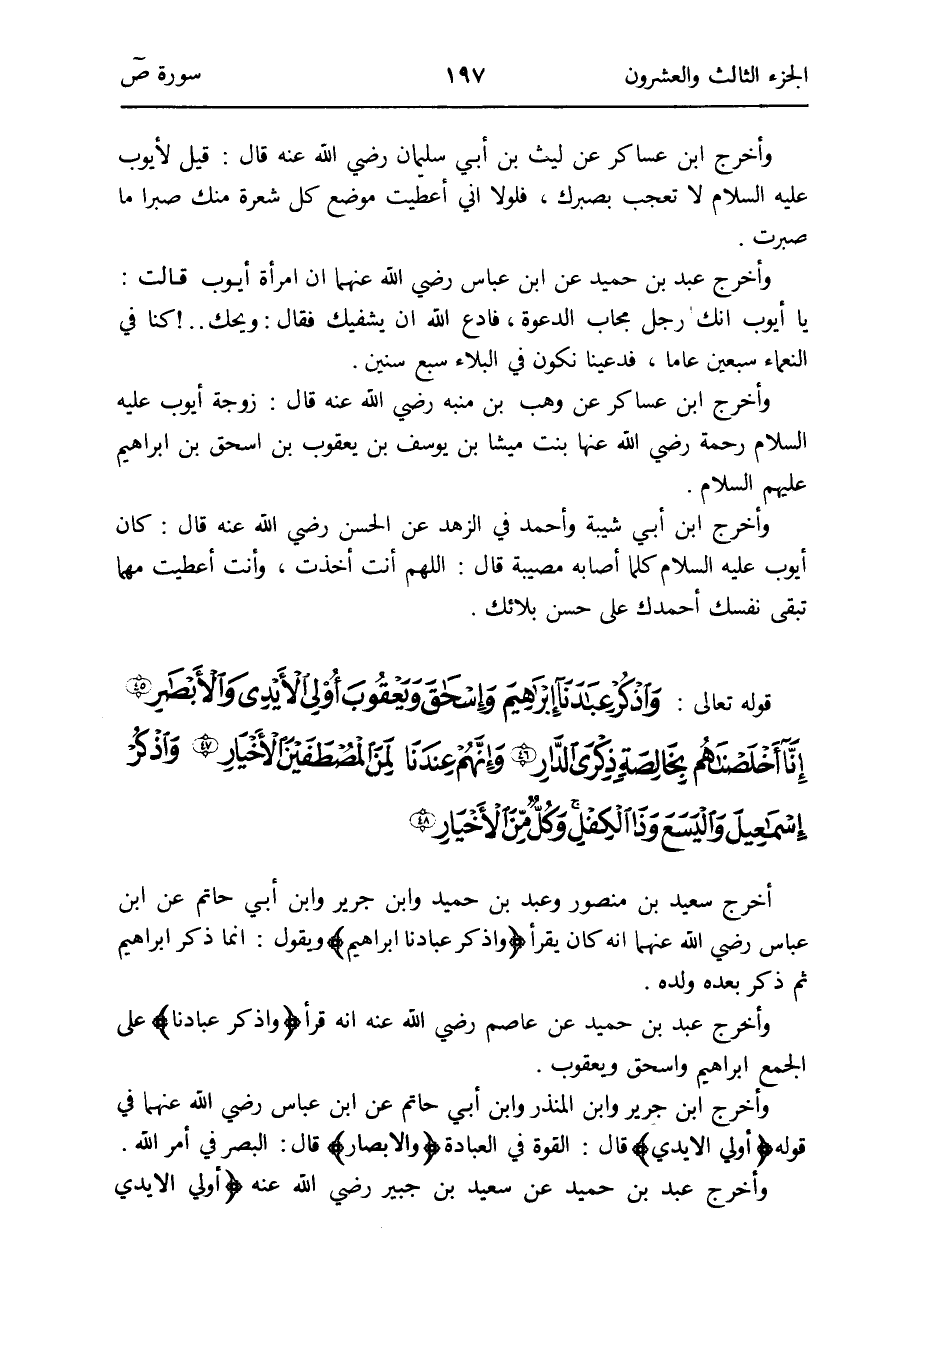 الجزء الثالث والعشرون ١٩٧ سورة صٓ
وأخرج ابن عساكر عن ليث بن أبي سليمان رضي الله عنه قال : قيل لأيوب
عليه السلام لا تعجب بصبرك ، فلولا اني أعطيت موضع كل شعرة منك صبرا ما
صبرت .
وأخرج عبد بن حميد عن ابن عباس رضي الله عنهما ان امرأة أيوب قالت :
يا أيوب انك رجل مجاب الدعوة ، فادع الله ان يشفيك فقال : ويحك..! كنا في
النعماء سبعين عاما ، فدعينا نكون في البلاء سبع سنين .
وأخرج ابن عساكر عن وهب بن منبه رضي الله عنه قال : زوجة أيوب عليه
السلام رحمة رضي الله عنها بنت ميشا بن يوسف بن يعقوب بن اسحق بن ابراهيم
عليهم السلام .
وأخرج ابن أبي شيبة وأحمد في الزهد عن الحسن رضي الله عنه قال : كان
أيوب عليه السلام كلما أصابه مصيبة قال : اللهم أنت أخذت ، وأنت أعطيت مهما
تبقى نفسك أحمدك على حسن بلائك .
قوله تعالى : وَٱذْكُرْ عِبَٰدَنَآ إِبْرَٰهِيمَ وَإِسْحَٰقَ وَيَعْقُوبَ أُو۟لِى ٱلْأَيْدِى وَٱلْأَبْصَٰرِ ٤٥
إِنَّآ أَخْلَصْنَٰهُم بِخَالِصَةٍ ذِكْرَى ٱلدَّارِ ٤٦ وَإِنَّهُمْ عِندَنَا لَمِنَ ٱلْمُصْطَفَيْنَ ٱلْأَخْيَارِ ٤٧ وَٱذْكُرْ
إِسْمَٰعِيلَ وَٱلْيَسَعَ وَذَا ٱلْكِفْلِ ۖ وَكُلٌّ مِّنَ ٱلْأَخْيَارِ ٤٨
أخرج سعيد بن منصور وعبد بن حميد وابن جرير وابن أبي حاتم عن ابن
عباس رضي الله عنهما انه كان يقرأ ﴿واذكر عبادنا ابراهيم﴾ ويقول : انما ذكر ابراهيم
ثم ذكر بعده ولده .
وأخرج عبد بن حميد عن عاصم رضي الله عنه انه قرأ ﴿واذكر عبادنا﴾ على
الجمع ابراهيم واسحق ويعقوب .
وأخرج ابن جرير وابن المنذر وابن أبي حاتم عن ابن عباس رضي الله عنهما في
قوله ﴿أولي الايدي﴾ قال : القوة في العبادة ﴿والابصار﴾ قال : البصر في أمر الله .
وأخرج عبد بن حميد عن سعيد بن جبير رضي الله عنه ﴿أولي الايدي